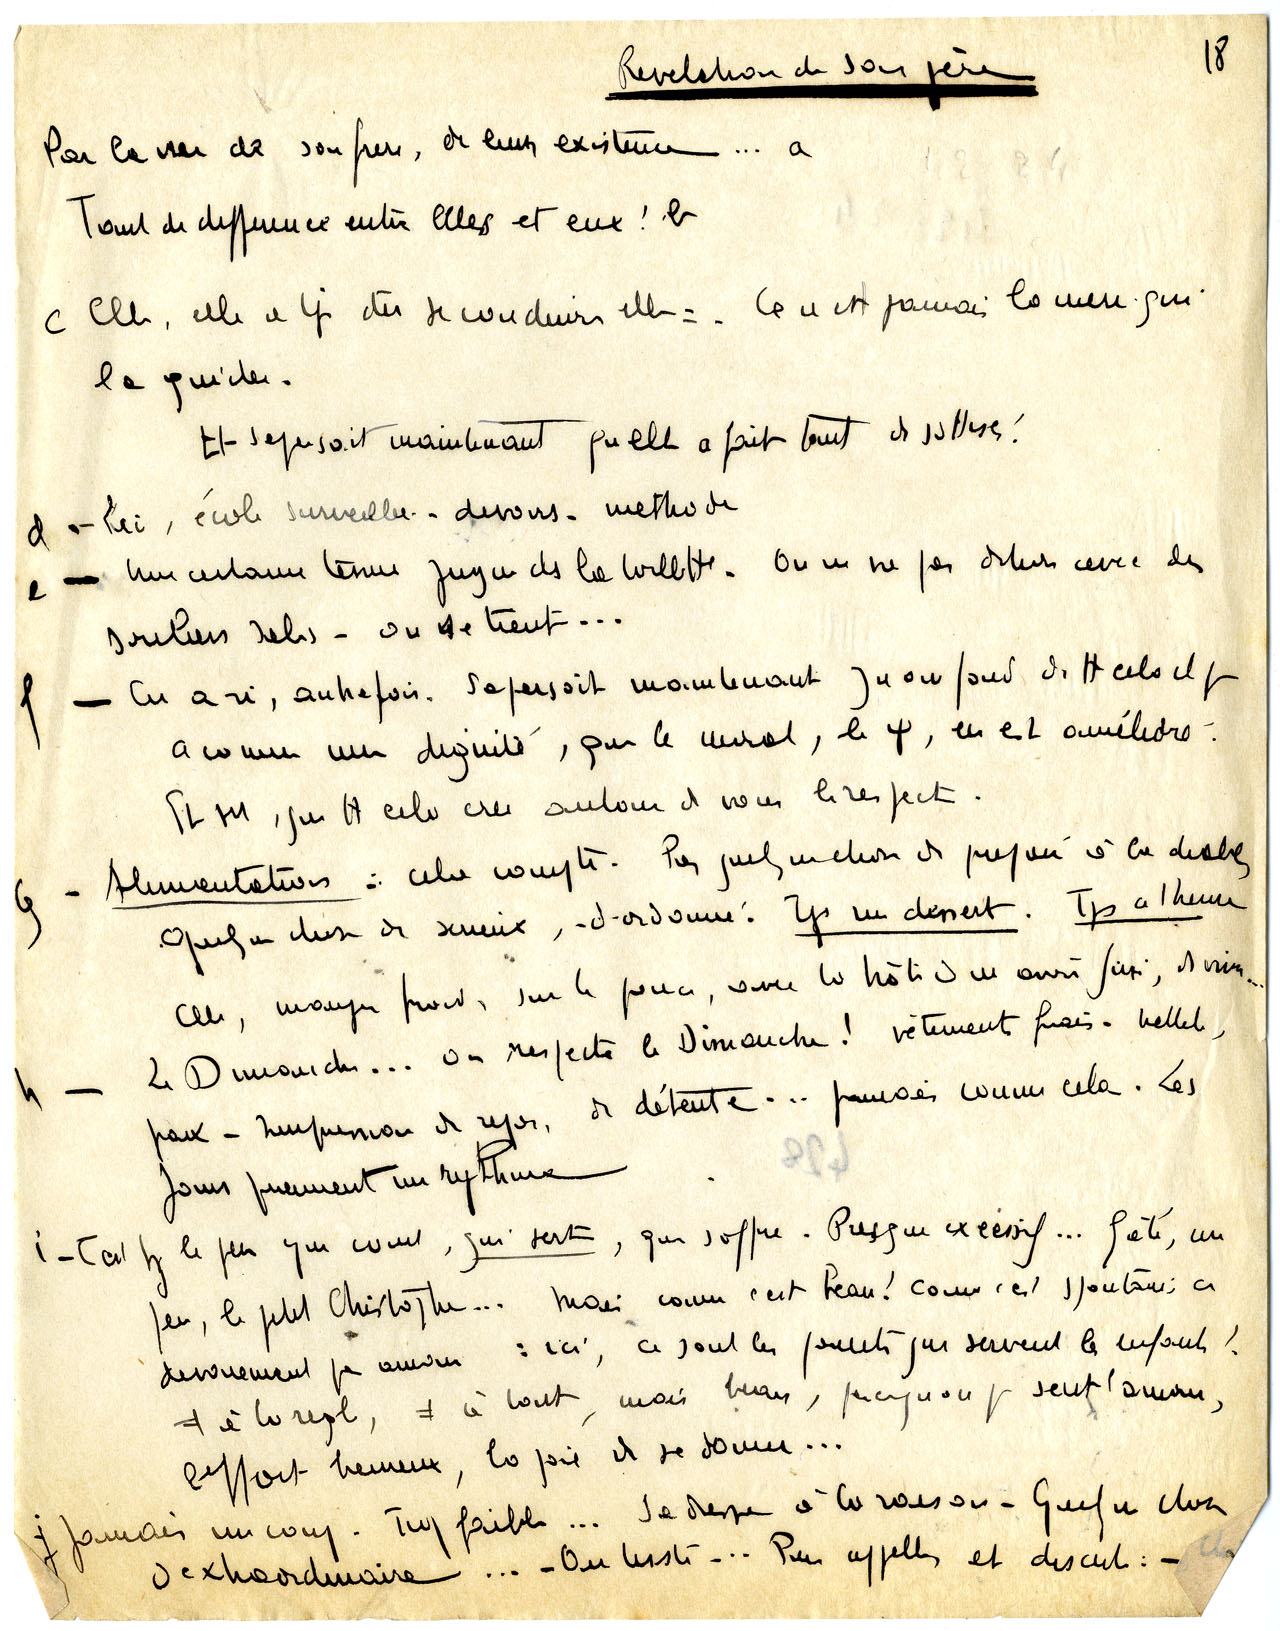 18
Revelation de son père
Par la vue de son frere, de leur existence ... a
Tant de difference entre Elles et eux ! b
c Elle, elle a tjs dû se conduire elle = . Ce n'est jamais la mere qui
la guidee.
Et s'apersoit maintenant qu'elle a fait tant de sottises !
d - Ici, école surveillee - devoirs - methode
e - Une certaine tenue jusque ds la toilette. On ne va pas dehors avec des
souliers sales - on se tient ...
f - En a ri, autrefois. S'apersoit maintenant qu'au fond de tt cela il y
a comme une dignité, que le moral, le ψ, en est amélioré.
Et sut, que tt cela cree autour de vous le respect.
g - Alimentation : cela compte. Pas quelque chose de preparé à la diable
Quelque chose de serieux, d'ordonné. Tjs un dessert. Tjs a l'heure
Elle, mange froid, sur le pouce, avec la hâte d'en avoir fini, de vivre...
h - Le Dimanche... on respecte le Dimanche ! vêtements frais -
paix - impression de repos, de détente ... jamais comme cela. Les
jours prennent un rythme
i - C'est le pere qui court, qui sert, qui s'offre. Presque excessif ... Gâté, un
peu, le petit Christophe ... Mais comme c'est beau ! comme c'est spontané ce
devouement par amour : ici, ce sont les parents qui servent les enfants !
≠ à la regle, ≠ à tout, mais beau, parce qu'on y sent l'amour,
l'effort heureux, la joie de se donner ...
j Jamais un coup. Trop faible ... S'adresse à la raison - Quelque chose
d'extraordinaire ... - On discute ... Pere appelle et discute : -